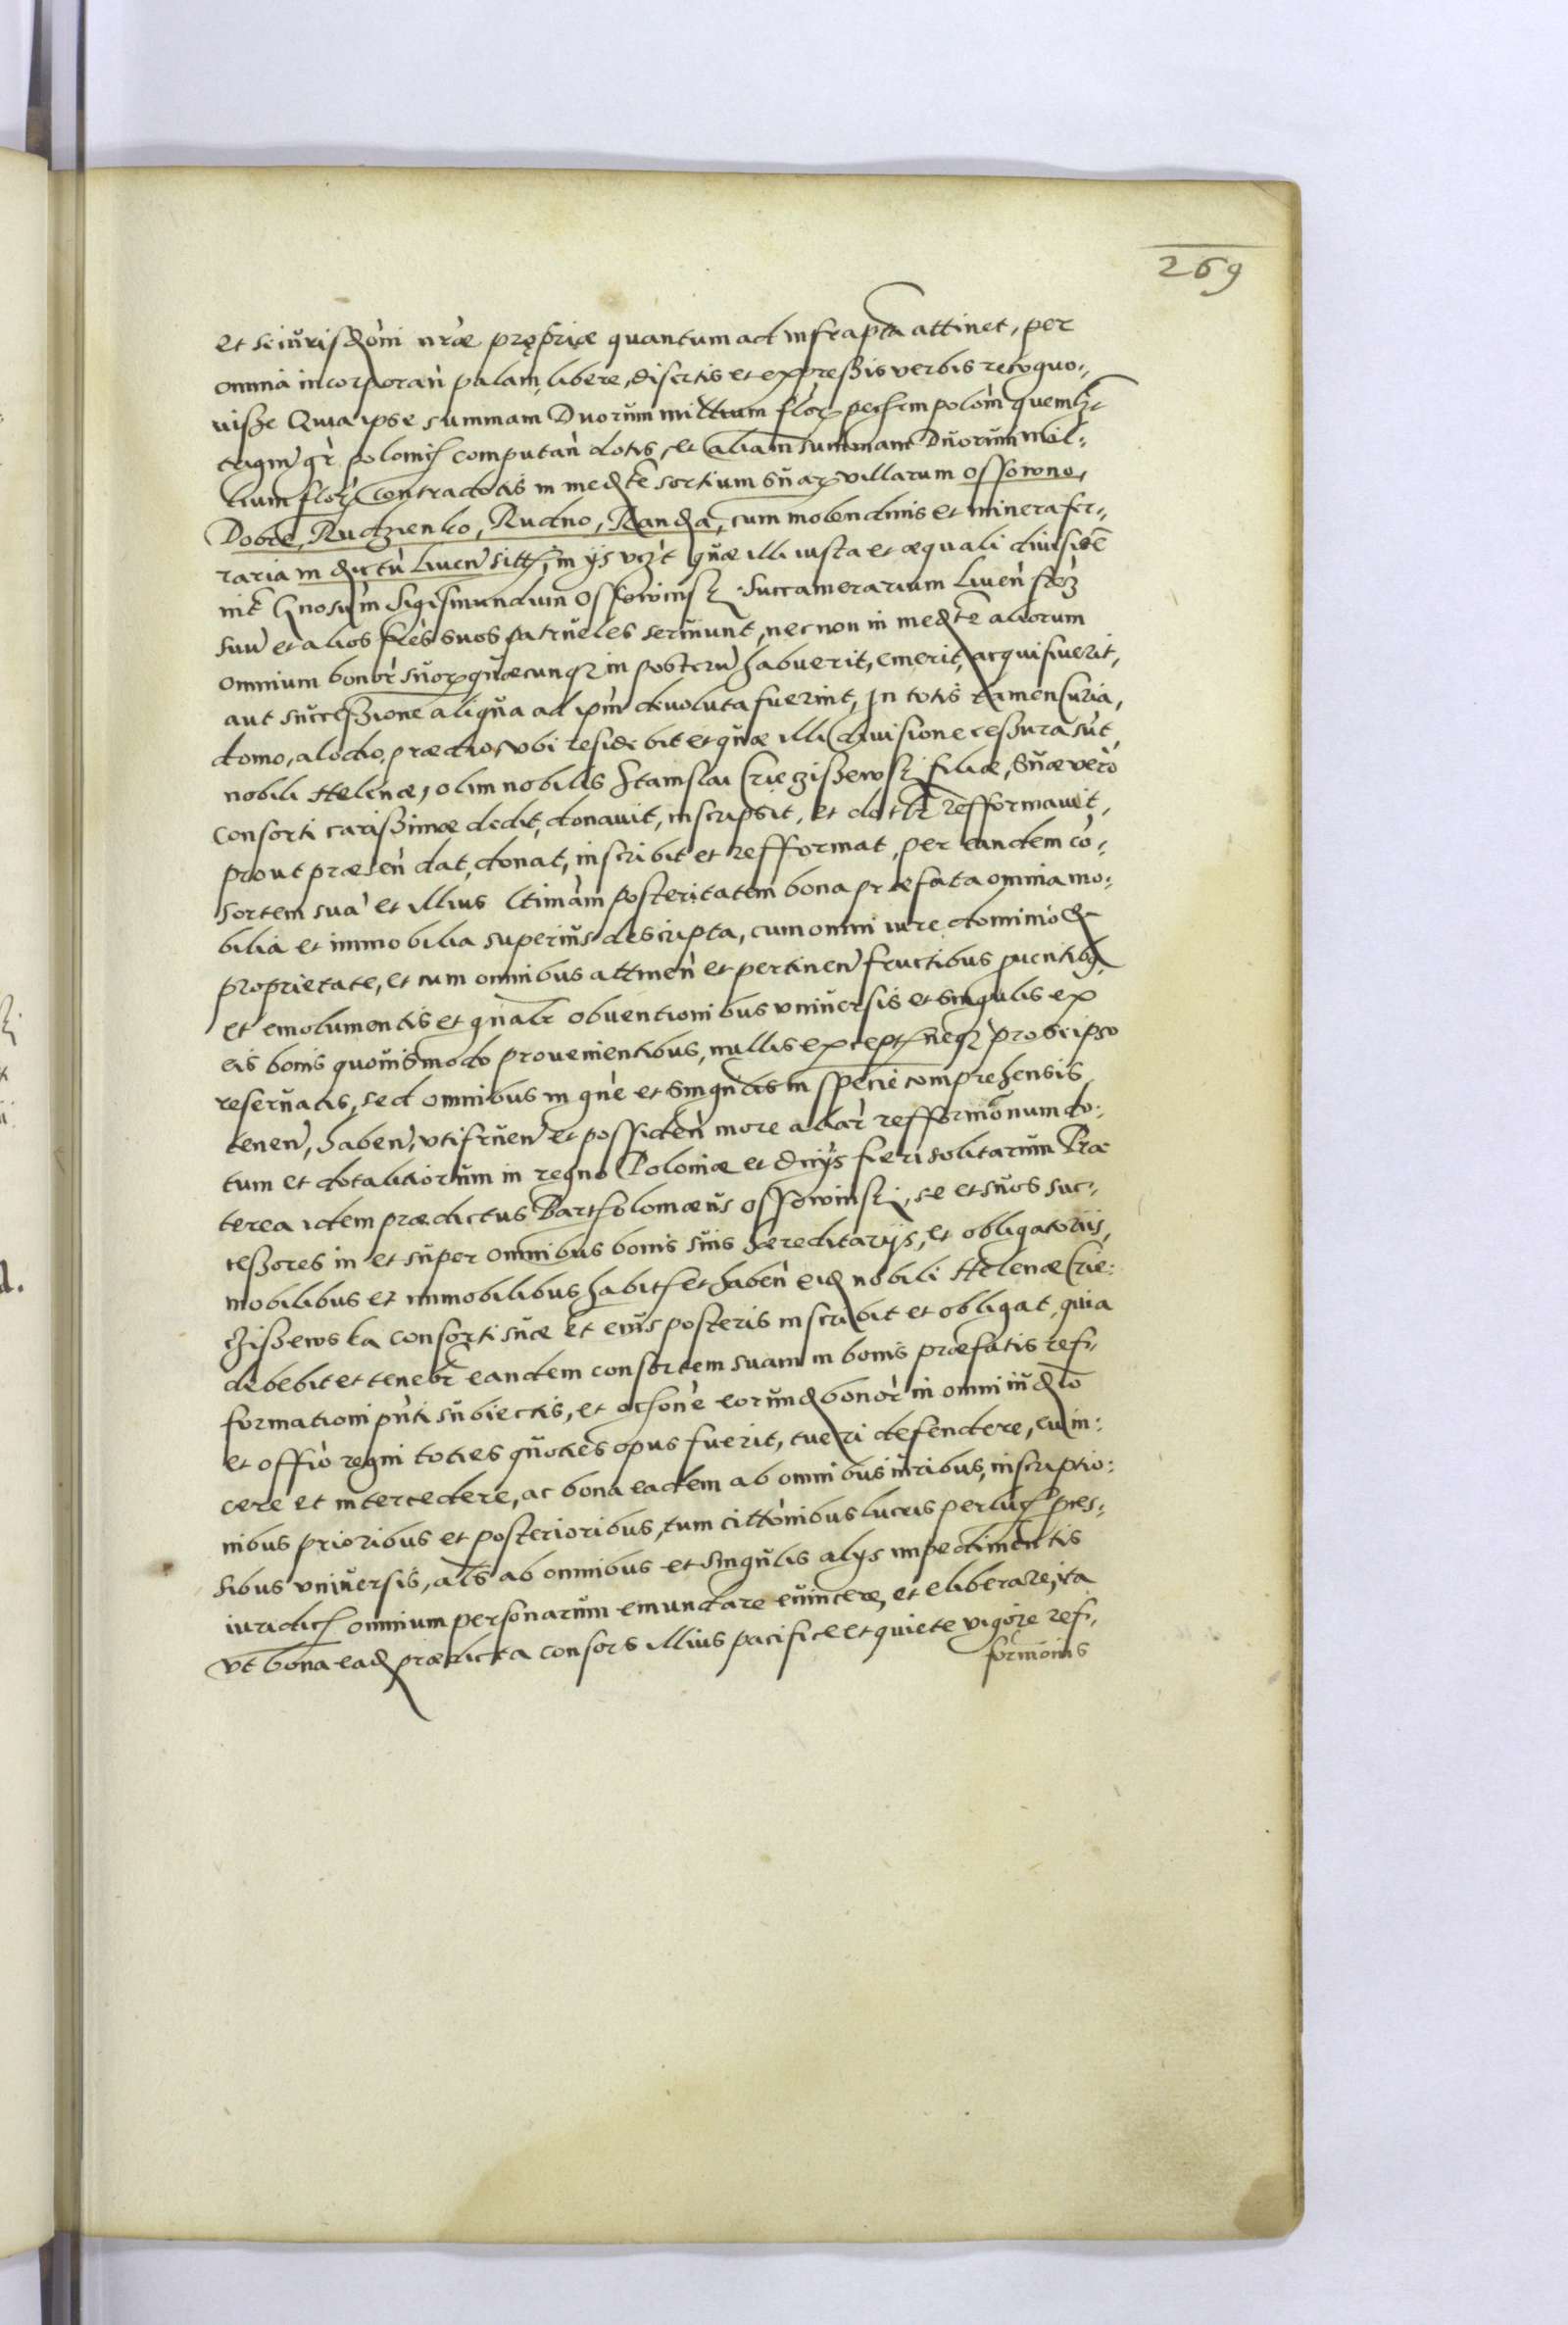 269
et se iurisdõni nræ propriæ quantum ad infrapta attinet, per
omnia incorporañ palam, libere, disertis et expreßis verbis recogno-
uiße Quia ipse summam Duorum millium flor pec̃ in polom quemlz
trigiñ gr̃ polonic computañ dotis, et aliam summam Duorum mil-
lium flor contradotis in medte sortium suar villarum Ossowno,
Dobre, Rudzienko, Rudno, Randa, cum molendinis et minera fer-
raria in dictu Liveñ sitt, in ijs vcz̃t quæ illi iusta et æquali diuisioẽ
int̃ Gnosum Sigismundum Ossowinsk Succamerarium Liveñ frẽ
suũ et alios frẽs suos patrueles serviunt, nec non in medte aliorum
omnium bonor suor quæcunq in posterũ habuerit, emerit, acquisiuerit,
aut succeßione aliqua ad ipm̃ deuoluta fuerint, In totis tamen Curia,
domo, alodio, prædio, vbi residebit et quæ illi diuisione ceßura sũt,
nobili Helenæ, olim nobilis Stanislai Crieczißewsk filiæ, Suæ vero
consorti carißimæ dedit, donauit, inscripsit, et dotlr̃ refformauit,
prout præseñ dat, donat, inscribit et refformat, per eandem cõ-
sortem suã et illius ltimam posteritatem bona præfata omnia mo-
bilia et immobilia superius descripta, cum omni iure dominio &
proprietate, et cum omnibus attineñ et pertineñ fructibus puentibq
et emolumentis et gnalr̃ obuentionibus vniuersis et singulis ex
eis bonis quouismodo prouenientibus, nullis except neq pro se ipso
reseruatis, sed omnibus in gñe et singulis in specie comprehensis
teneñ, habeñ, vtifrueñ et possideñ more aliar̃ refformõnum do-
tum et dotalitiorum in regno Poloniæ et Dnijs fieri solitarum Præ
terea idem prædictus Bartholomæus Ossowinski, se et suos suc-
ceßores in et super omnibus bonis suis hæreditarijs, et obligatorijs,
mobilibus et immobilibus habit et habeñ eid nobili Helenæ Crie-
czißewska consorti suæ et eius posteris inscribit et obligat, quia
debebit et tenebr̃ eandem consortem suam in bonis præfatis ref-
formationi pñti subiectis, et oc̃sone eorund bonor̃ in omni iudtõ
et offiõ regni toties quoties opus fuerit, tueri defendere, euin-
cere et intercedere, ac bona eadem ab omnibus iuribus, inscriptio-
nibus prioribus et posterioribus, tum cittõnibus lucris perluc preß-
sibus vniuersis, als ab omnibus et singulis alijs impedimentis
iuridic omnium personarum emundare euincere, et eliberare, ita
vt bona ead prædicta consors illius pacifice et quiete vigore ref-
formõnis